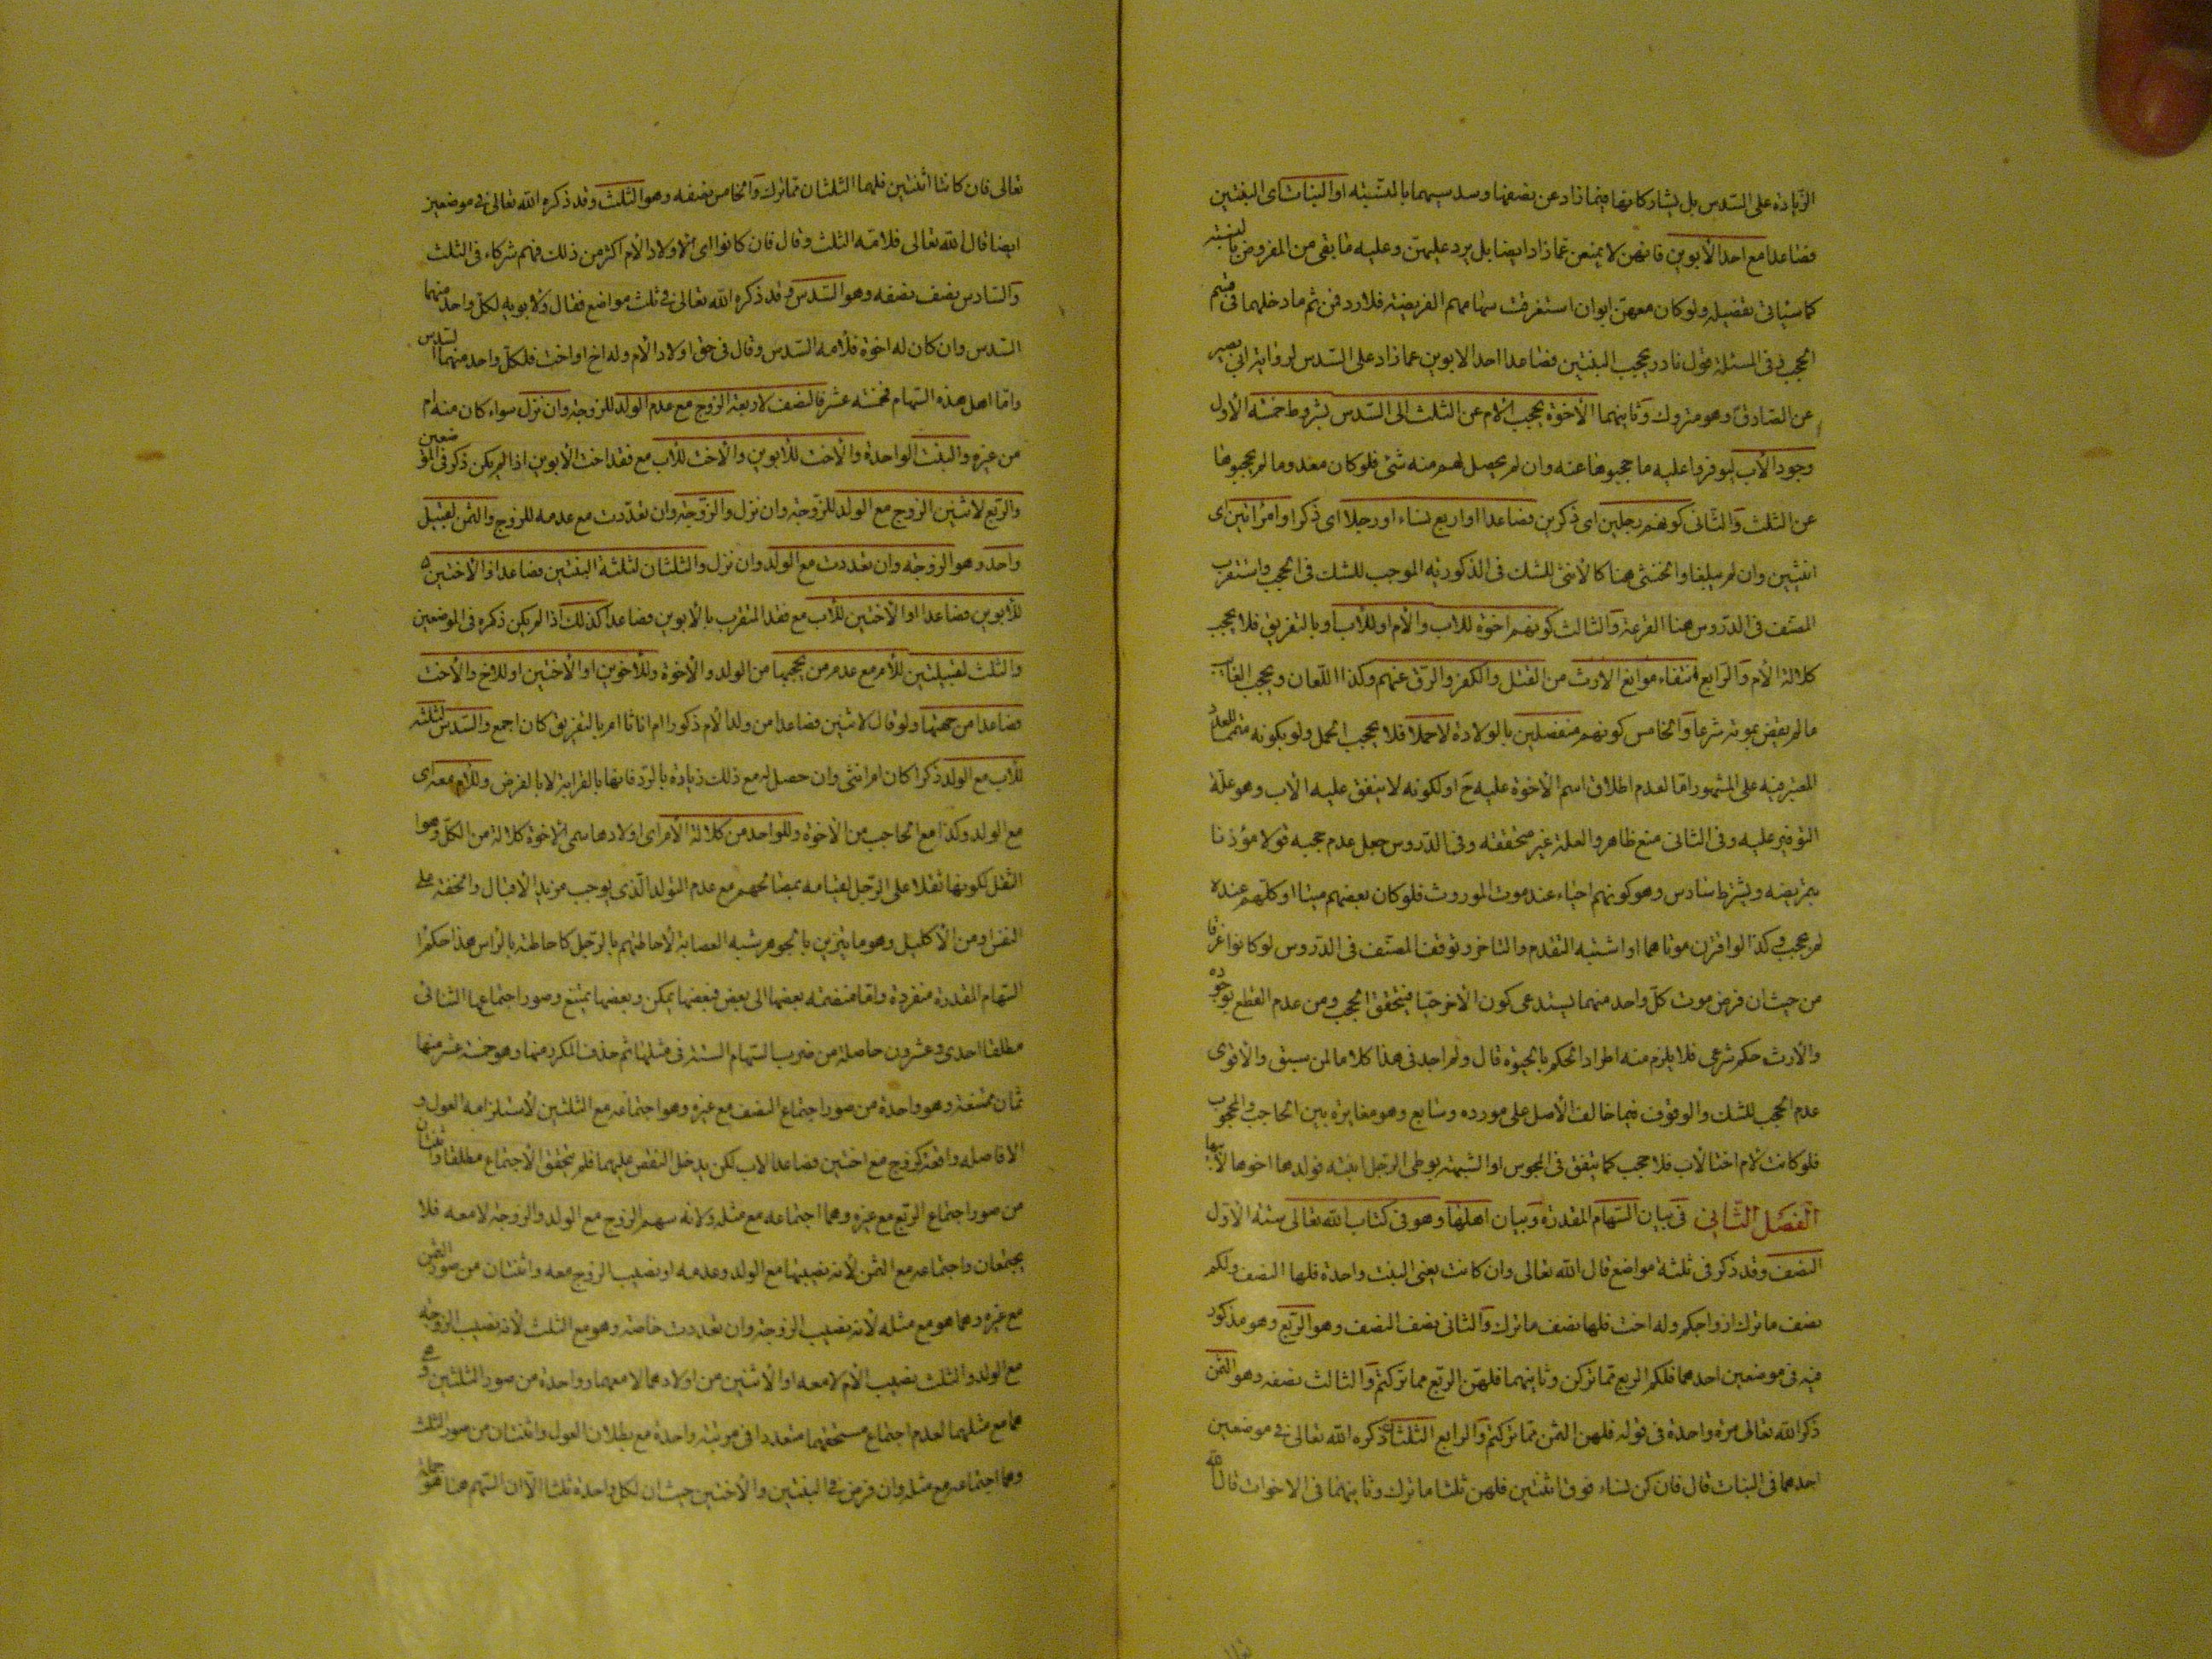 الزيادة على السدس بل يشاركانها فيما زاد عن نصفها وسدسيهما بالنسبة او البنات اى البنتين
فصاعدا مع احد الأبوين فانهن لا يمنعن عما زاد ايضا بل يرد عليهن وعليه ما بقى من المفروض بالنسبة
كما سياتى تفصيله ولو كان معهن ابوان استغرقت سهامهم الفريضة فلا رد فمن ثم ما دخلهما فى قسم
الحجب وفى المسئلة قول نادر بحجب البنتين فصاعدا احد الابوين عما زاد على السدس لرواية ابى بصير
عن الصادق وهو متروك وثانيهما الأخوة يحجب الام عن الثلث الى السدس بشروط خمسة الأول
وجود الأب ليوفروا عليه ما حجبوها عنه وان لم يحصل لهم منه شئ فلو كان معدوما لم يحجبوها
عن الثلث والثانى كونهم رجلين اى ذكرين فصاعدا او اربع نساء او رجلا اى ذكرا وامراتين اى
انثيين وان لم يبلغا والخنثى هنا كالأنثى للشك فى الذكورية الموجب للشك فى الحجب واستقرب
المصنف فى الدروس هنا القرعة والثالث كونهم اخوة للاب والأم او للأب او بالتفريق فلا يحجب
كلالة الأم والرابع انتفاء موانع الارث من القتل والكفر والرق عنهم وكذا اللعان ويحجب الغائب
ما لم يقض بموته شرعا والخامس كونهم منفصلين بالولادة لا حملا فلا يحجب الحمل ولو بكونه متمما للعدد
المعتبر فيه على المشهور اما لعدم اطلاق اسم الأخوة عليه ح او لكونه لا ينفق عليه الأب وهو علة
التوفير عليه وفى الثانى منع ظاهر والعلة غير متحققة وفى الدروس جعل عدم حجبه قولا مؤذنا
بتمريضه ويشترط سادس وهو كونهم احياء عند موت الموروث فلو كان بعضهم ميتا او كلهم عنده
لم يحجب وكذا لو اقترن موتاهما او اشتبه التقدم والتاخر وتوقف المصنف فى الدروس لو كانوا غرقا
من حيث ان فرض موت كل واحد منهما يستدعى كون الأخر حيا فيتحقق الحجب ومن عدم القطع بوجوده
والأرث حكم شرعى فلا يلزم منه اطراد الحكم بالحيوة قال ولم اجد فى هذا كلاما لمن سبق والأقوى
عدم الحجب للشك والوقوف فيما خالف الأصل على مورده وسابع وهو مغايرة بين الحاجب والمحجوب
فلو كانت الام اختا لأب فلا حجب كما يتفق فى المجوس او الشبهة بوطى الرجل ابنته فولدها اخوها لأبيها
الفصل الثانى فى بيان السهام المقدرة وبيان اهلها وهو فى كتاب الله تعالى ستة الأول
النصف وقد ذكر فى ثلثة مواضع قال الله تعالى وان كانت يعنى البنت واحدة فلها النصف ولكم
نصف ما ترك ازواجكم وله اخت فلها نصف ما ترك والثانى نصف النصف وهو الربع وهو مذكور
فيه فى موضعين احدهما فلكم الربع مما تركن وثانيهما فلهن الربع مما تركتم والثالث نصفه وهو الثمن
ذكر الله تعالى مرة واحدة فى قوله فلهن الثمن مما تركتم والرابع الثلثان ذكره الله تعالى فى موضعين
احدهما فى البنات قال فان كن نساء فوق اثنتين فلهن ثلثا ما ترك وثانيهما فى الاخوات قال الله
تعالى فان كانتا اثنتين فلهما الثلثان مما ترك والخامس نصفه وهو الثلث وقد ذكره الله تعالى فى موضعين
ايضا قال الله تعالى فلامه الثلث وقال فان كانوا اى الاولاد الأم اكثر من ذلك فهم شركاء فى الثلث
والسادس نصف نصفه وهو السدس وقد ذكره الله تعالى فى ثلث مواضع فقال ولابويه لكل واحد منهما
السدس وان كان له اخوة فلأمه السدس وقال فى حق اولاد الأم وله اخ او اخت فلكل واحد منهما السدس
واما اهل هذه السهام فخمسة عشر فالنصف لاربعة الزوج مع عدم الولد للزوجة وان نزل سواء كان منه ام
من غيره والبنت الواحدة والأخت للأبوين والأخت للأب مع فقد اخت الأبوين اذا لم يكن ذكر فى الموضعين
والربع لاثنين الزوج مع الولد للزوجة وان نزل والزوجة وان تعددت مع عدمه للزوج والثمن لقبيل
واحد وهو الزوجة وان تعددت مع الولد وان نزل والثلثان لثلثة البنتين فصاعدا والأختين
للأبوين فصاعدا او الأختين للأب مع فقد المتقرب بالأبوين فصاعدا كذلك اذا لم يكن ذكره فى الموضعين
والثلث لقبيلتين للأم مع عدم من يحجبها من الولد والأخوة وللأخوين او الأختين او للاخ والأخت
فصاعدا من جهتها ولو قال لاثنين فصاعدا من ولد الأم ذكورا ام اناثا ام بالتفريق كان اجمع والسدس لثلثة
للأب مع الولد ذكرا كان ام انثى وان حصل له مع ذلك زيادة بالرد فانها بالقرابة لا بالفرض وللأم معه اى
مع الولد وكذا مع الحاجب من الأخوة وللواحد من كلالة الأم اى اولادها سمى الاخوة كلالة من الكل وهو
الثقل لكونها ثقلا على الرجل لقيامه بمصالحهم مع عدم التولد الذى يوجب مزيد الأقبال والخفة على
النفس او من الأكليل وهو ما يتزين بالجوهر شبه العصابة لأحاطتهم بالرجل كاحاطته بالراس هذا حكم
السهام المقدرة منفردة واما منضمة بعضها الى بعض فبعضها يمكن وبعضها يمتنع وصور اجتماعها الثنائى
مطلقا احدى وعشرون حاصلة من ضرب السهام الستة فى مثلها ثم حذف المكرر منها وهو خمسة عشر منها
ثمان ممتنعة وهو واحدة من صور اجتماع النصف مع غيره وهو اجتماعه مع الثلثين لأستلزامه العول و
الا فاصله واقعة كزوج مع اختين فصاعدا لاب لكن يدخل النقص عليهما فلم يتحقق الأجتماع مطلقا واثنتان
من صور اجتماع الربع مع غيره وهما اجتماعه مع مثله ولانه سهم الزوج مع الولد والزوجة لا معه فلا
يجتمعان واجتماعه مع الثمن لأنه نصيبها مع الولد وعدمه او نصيب الزوج معه واثنتان من صور الثمن
مع غيره وهما هو مع مثله لأنه نصيب الزوجة وان تعددت خاصة وهو مع الثلث لأنه نصيب الزوجة
مع الولد والثلث نصيب الأم لا معه او الأثنين من اولادهما لا معهما وواحدة من صور الثلثين وهى
هما مع مثلهما لعدم اجتماع مستحقهما متعددا فى مرتبة واحدة مع بطلان العول واثنتان من صور الثلث
وهما اجتماعه مع مثله وان فرض فى البنتين والأختين حيث ان لكل واحدة ثلثا الا ان السهم هنا هو جملة